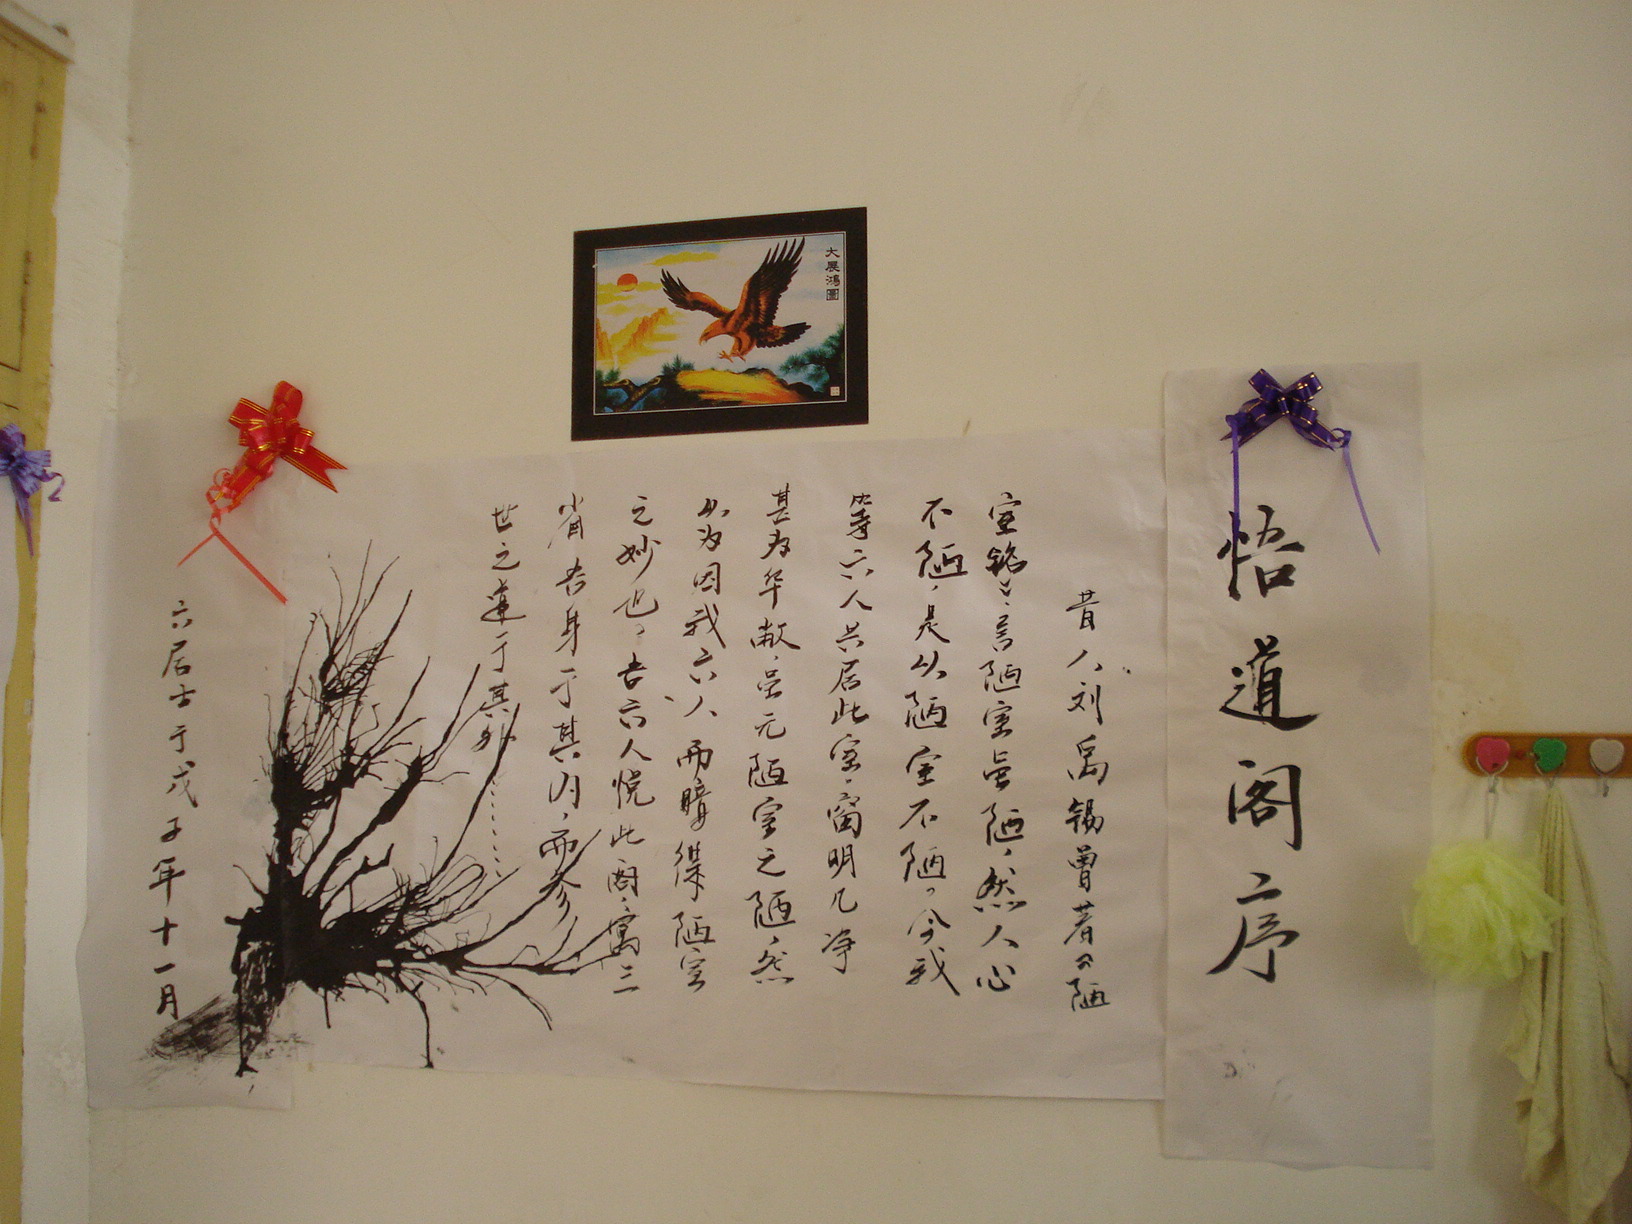 大展鸿圖
悟道阁序
昔人刘禹锡曾著《陋
室铭》言陋室虽陋，然人心
不陋，是以陋室不陋。今我
等六人共居此室，窗明几净
甚为华敞，虽无陋室之陋，然
为因我六人而精得陋室
之妙也。吾六人悦此阁，寓三
省吾身于其内，而参
世之道于其外……
六居士于戊子年十一月